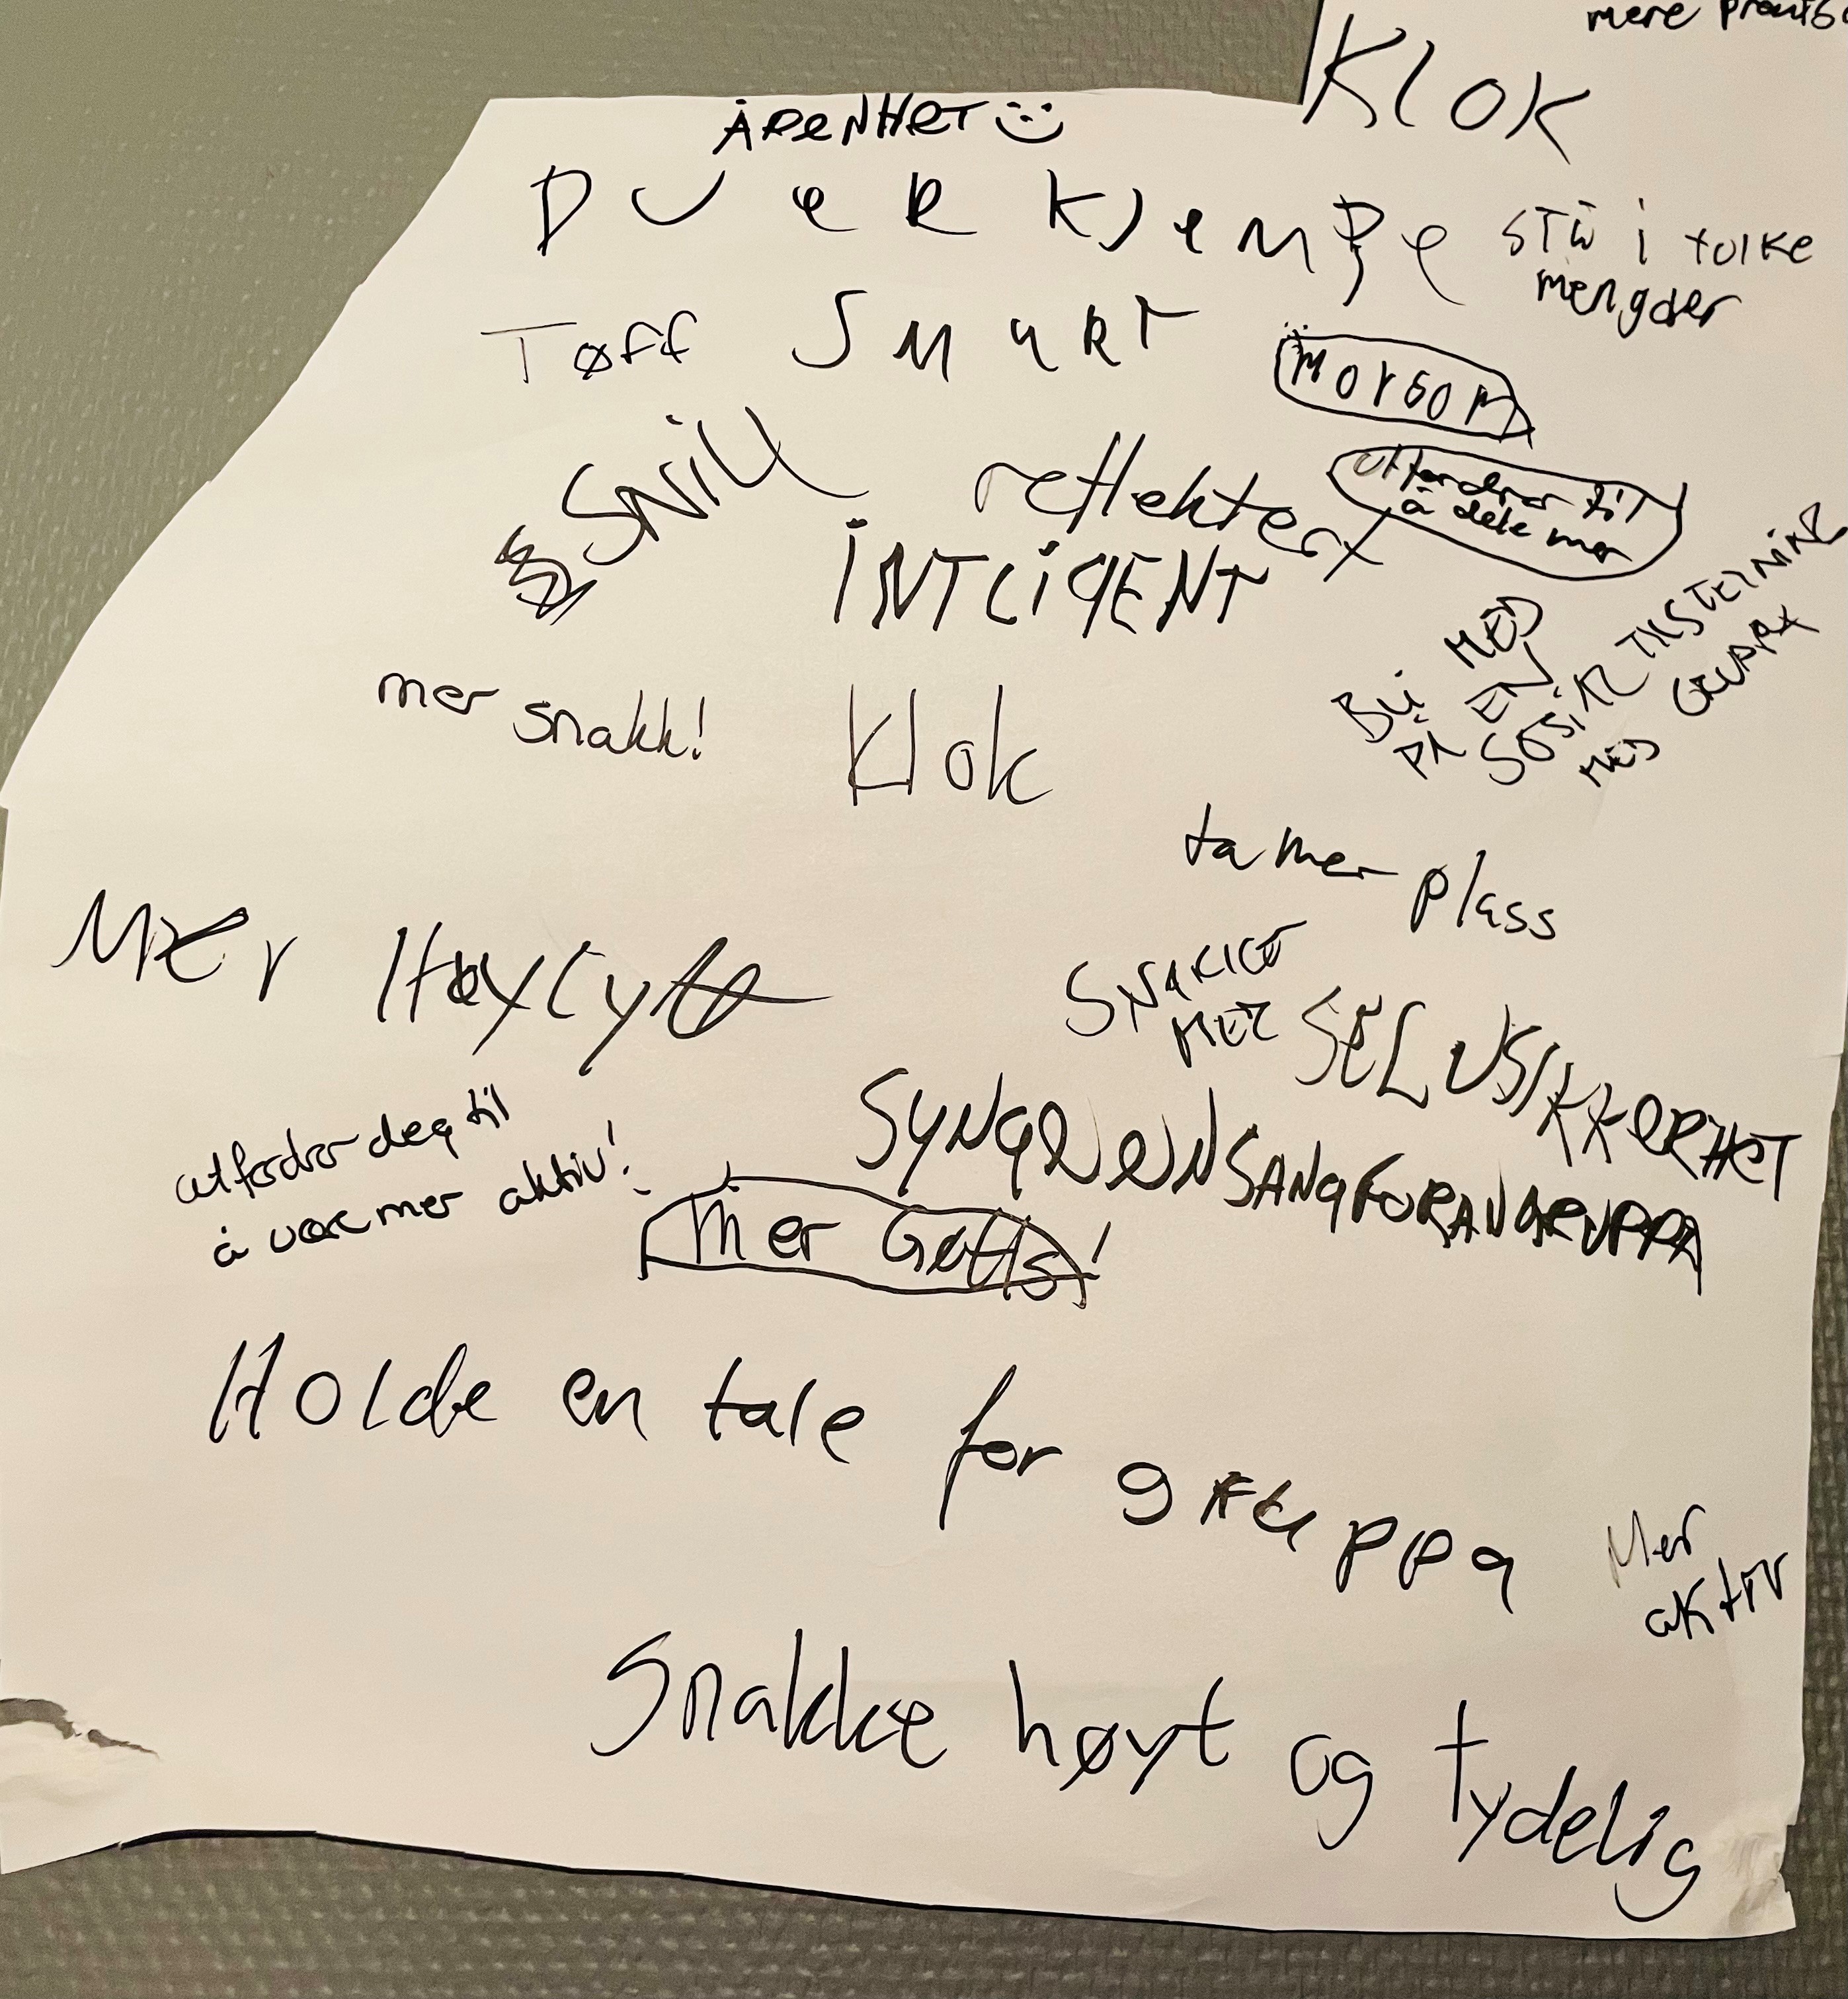 mere
KlOK
ÅPeNHeT
DU eR KJeMPe
STÅ i
mengder
Tøff SMaRT
morsom
SNiLL
reflektert
utfordrer til
å dele mer
iNTLiGENT
BLI MED
PÅ EN
SOSiAL TILSTELNING
MED GRUPPA
mer snakk!
Klok
ta mer plass
Mer Høylytt
SNAKKE
MER
SELVSIKKeRHeT
SYNGe eN SANG FORAN GRUPPA
utfordrer deg til
å være mer aktiv!
mer Gøtts!
Holde en tale for gruppa
Mer
aktiv
Snakke høyt og tydelig